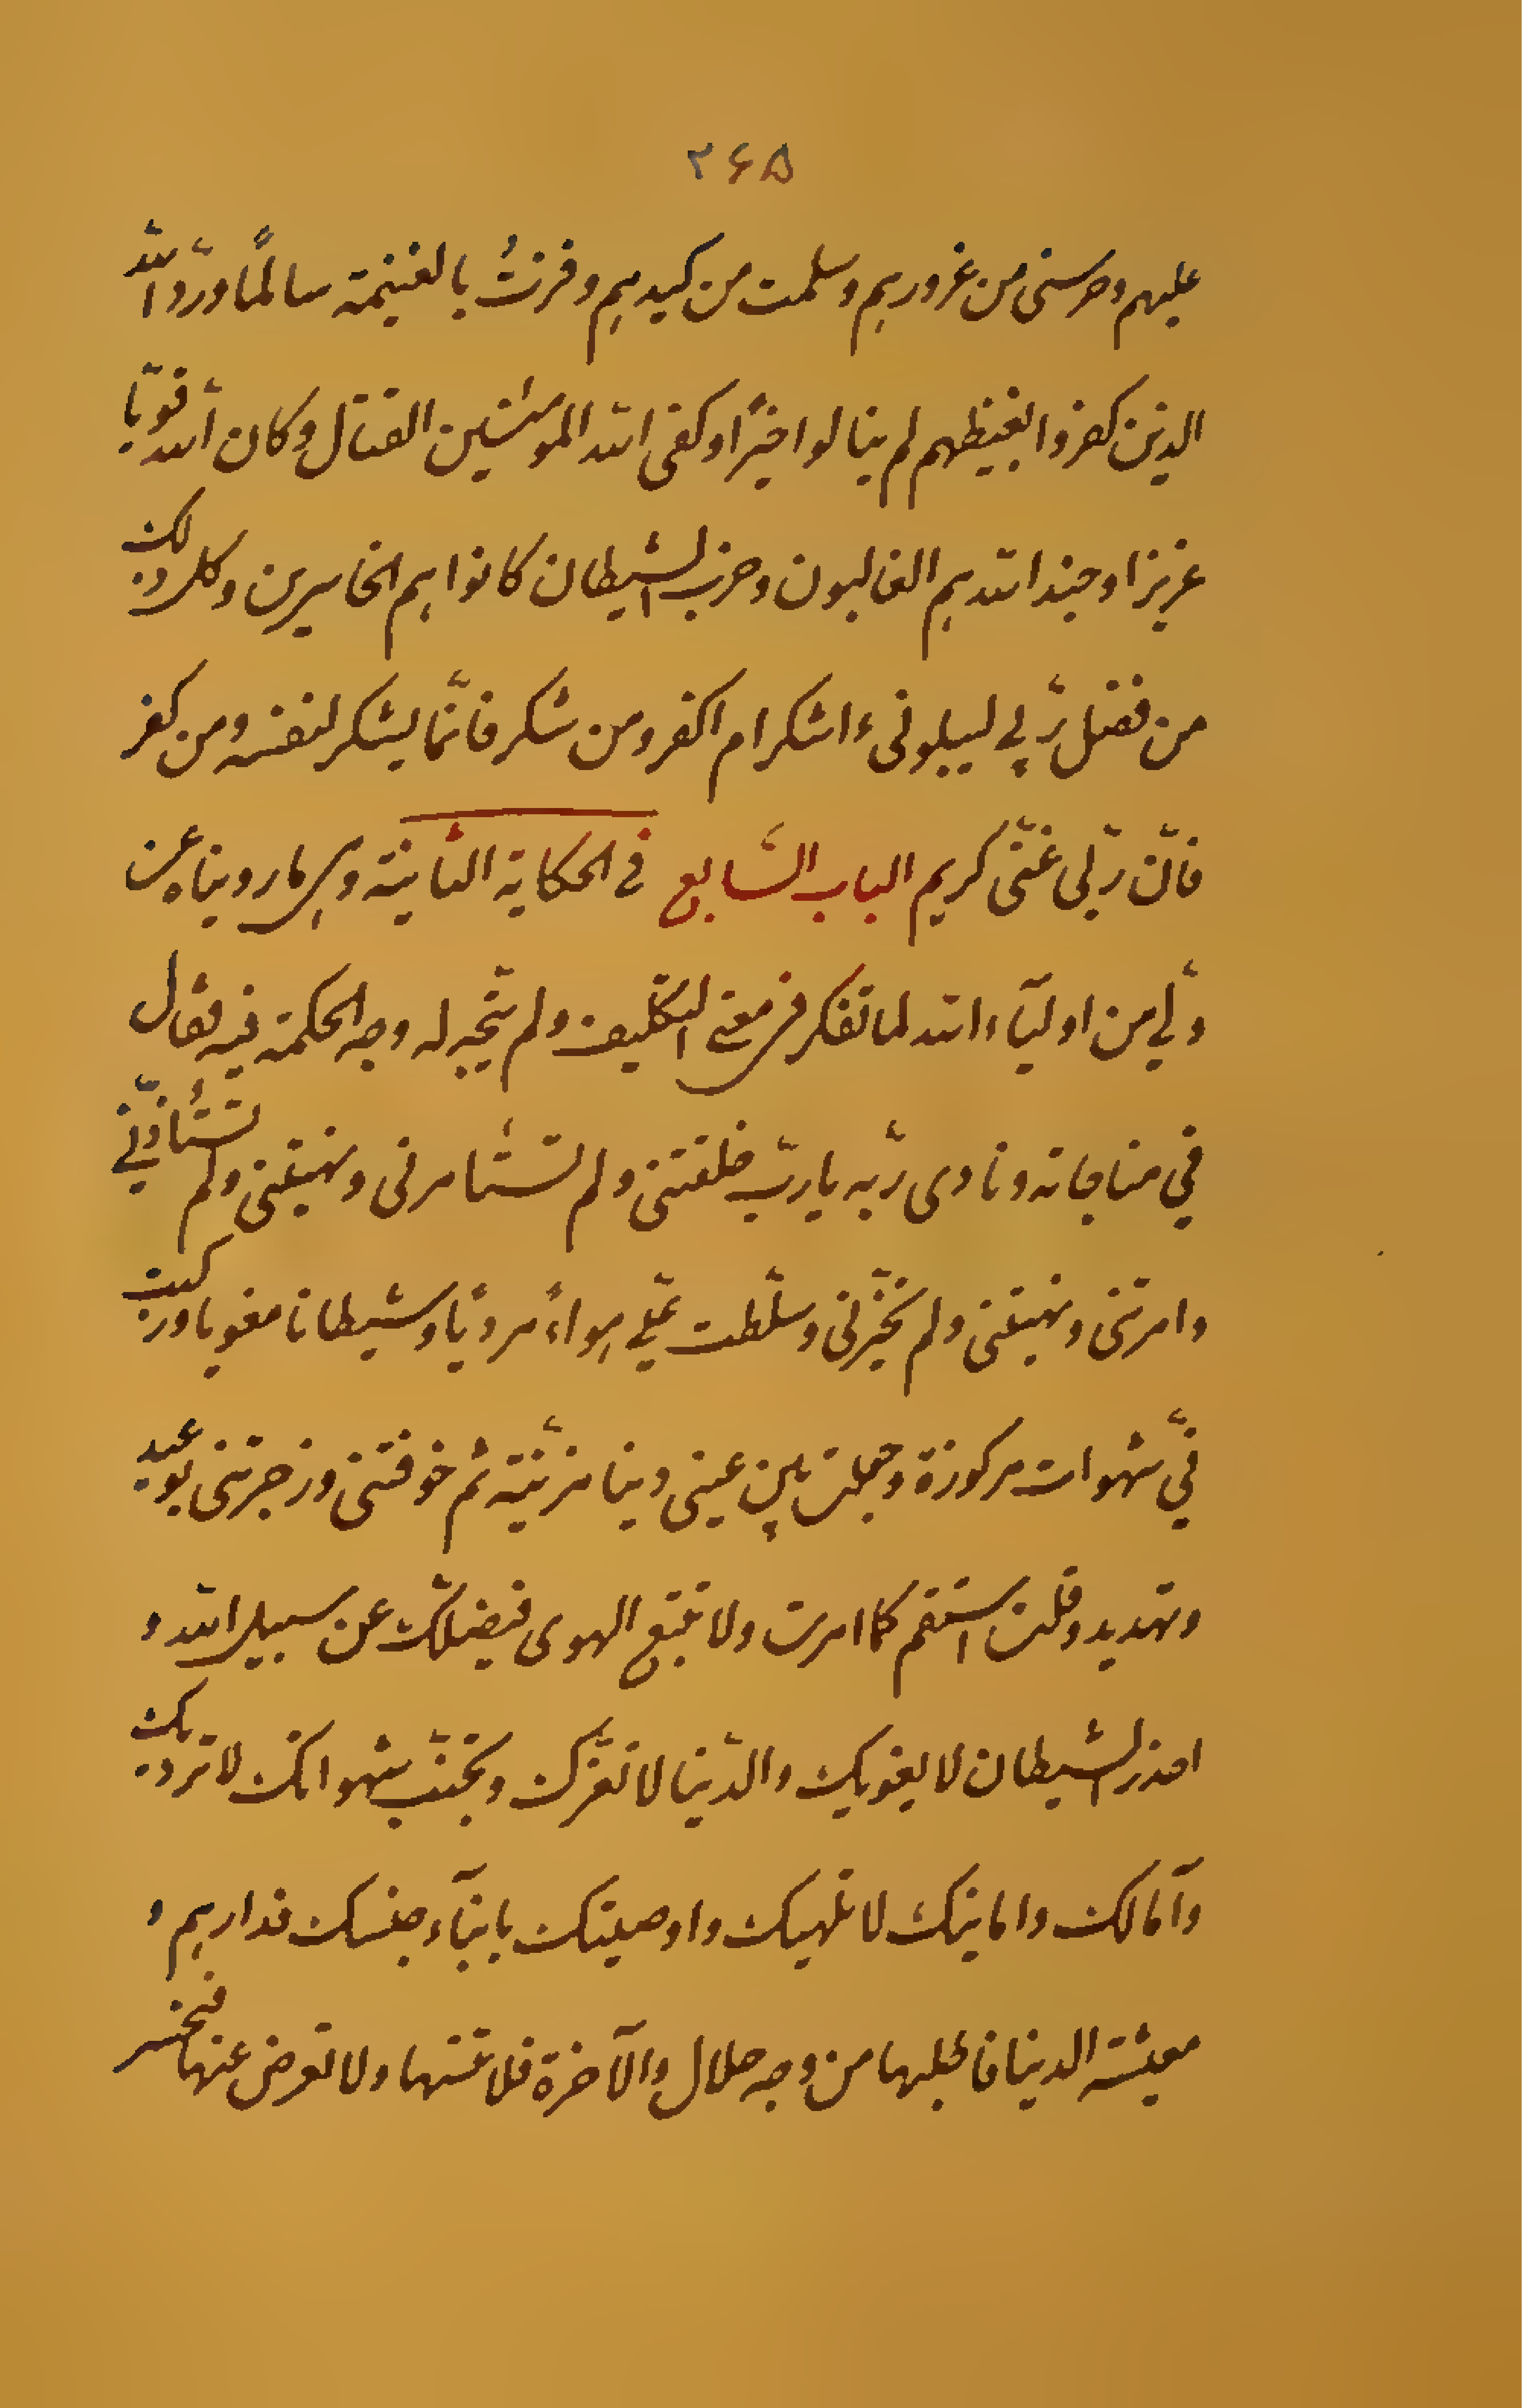 ۳۶۵
عليهم وحرسنى من غرورهم وسلمت من كيدهم وفزتُ بالغنيمة سالمًا وردّ الله
الذين كفروا بغيظهم لم ينالوا خيرًا وكفى الله المومنين القتال وكان الله قويّا
عزيزا وجند الله هم الغالبون وحزب الشيطان كانوا هم الخاسرين وكل ذلك
من فضل ربّي ليبلونى ءاشكر ام اكفر ومن شكر فانّما يشكر لنفسه ومن كفر
فانّ ربّى غنّى كريم الباب السّابع في الحكاية الثانية وهى ما رويناه عن
ولي من اوليآء الله لما تفكر في معنى التكليف ولم يتّجه له وجه الحكمة فيه فقال
في مناجاته ونادى ربّه يا ربّ خلقتنى ولم تستأمرنى ونهيتنى ولم تستأذنّي
وامرتنى ونهيتنى ولم تخيّرنى وسلّطت عليّ هواءً مرديًا وشيطانا مغويا وركبت
فيّ شهوات مركوزة وجعلت بين عينى دينا مزيّنة ثم خوفتنى وزجرتنى بوعيد
وتهديد وقلت استقم كما امرت ولا تتبع الهوى فيضلّك عن سبيل الله و
احذر الشيطان لا يغويك والدّنيا لا تغرّك وتجنّب شهواتك لا ترديك
وآمالك وامانيك لا تلهيك واوصيتك بابنآء جنسك فدارهم و
معيشة الدنيا فاطلبها من وجه حلال والآخرة فلا تنسها ولا تعرض عنها فتخسر